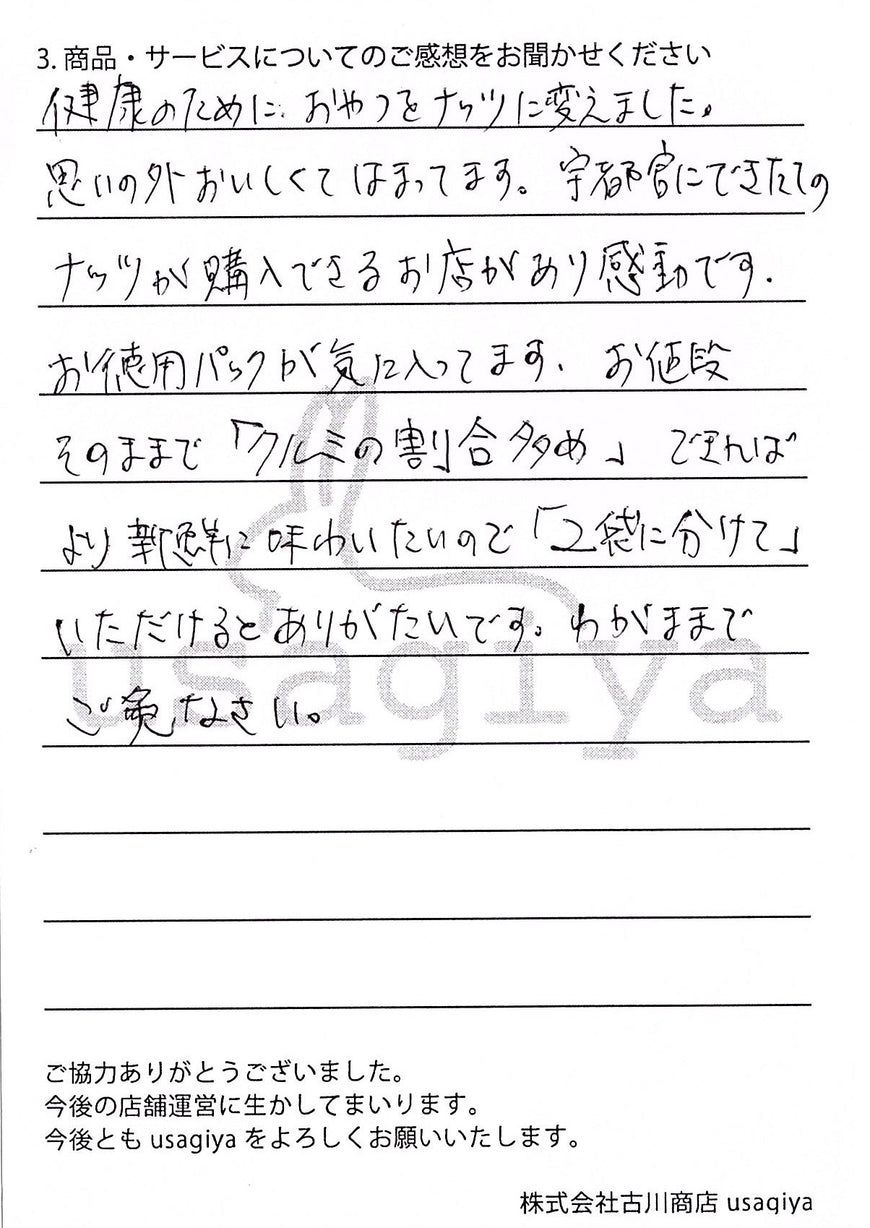 3. 商品・サービスについてのご感想をお聞かせください
健康のために、おやつをナッツに変えました。
思いの外おいしくてはまってます。宇都宮にできたての
ナッツが購入できるお店があり感動です.
お徳用パックが気に入ってます. お値段
そのままで「クルミの割合多め」できれば
より新鮮に味わいたいので「2袋に分けて」
いただけるとありがたいです。わがままで
ご免なさい。
usagiya
ご協力ありがとうございました。
今後の店舗運営に生かしてまいります。
今後とも usagiya をよろしくお願いいたします。
株式会社古川商店 usagiya